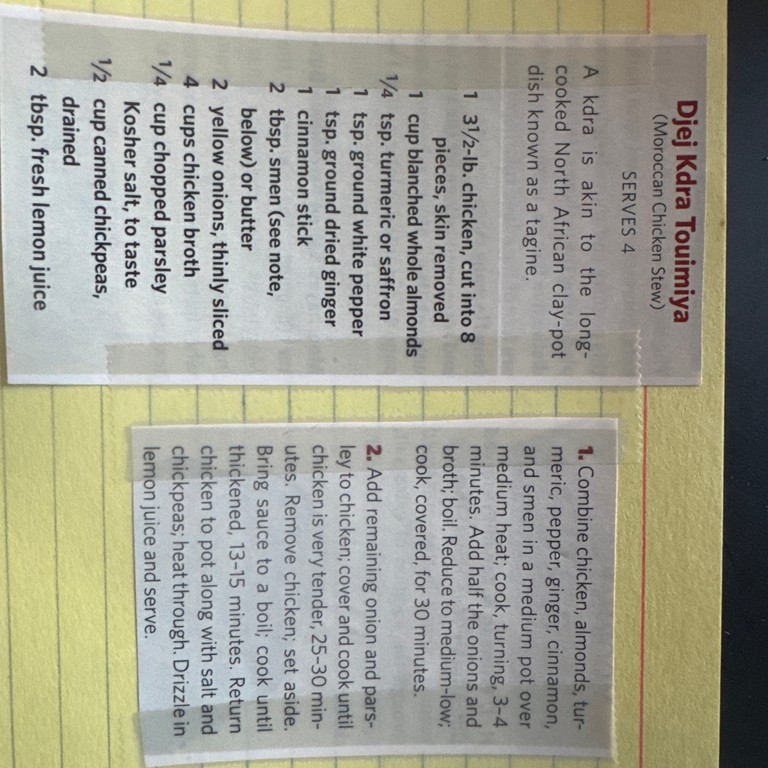 Djej Kdra Touimiya
(Moroccan Chicken Stew)
SERVES 4
A kdra is akin to the long-
cooked North African clay-pot
dish known as a tagine.
1 3½-lb. chicken, cut into 8
pieces, skin removed
1 cup blanched whole almonds
¼ tsp. turmeric or saffron
1 tsp. ground white pepper
1 tsp. ground dried ginger
1 cinnamon stick
2 tbsp. smen (see note,
below) or butter
2 yellow onions, thinly sliced
4 cups chicken broth
¼ cup chopped parsley
Kosher salt, to taste
½ cup canned chickpeas,
drained
2 tbsp. fresh lemon juice
1. Combine chicken, almonds, tur-
meric, pepper, ginger, cinnamon,
and smen in a medium pot over
medium heat; cook, turning, 3–4
minutes. Add half the onions and
broth; boil. Reduce to medium-low;
cook, covered, for 30 minutes.
2. Add remaining onion and pars-
ley to chicken; cover and cook until
chicken is very tender, 25–30 min-
utes. Remove chicken; set aside.
Bring sauce to a boil; cook until
thickened, 13–15 minutes. Return
chicken to pot along with salt and
chickpeas; heat through. Drizzle in
lemon juice and serve.